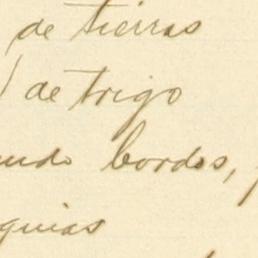 de tierras
de trigo
ando bordos,
quias